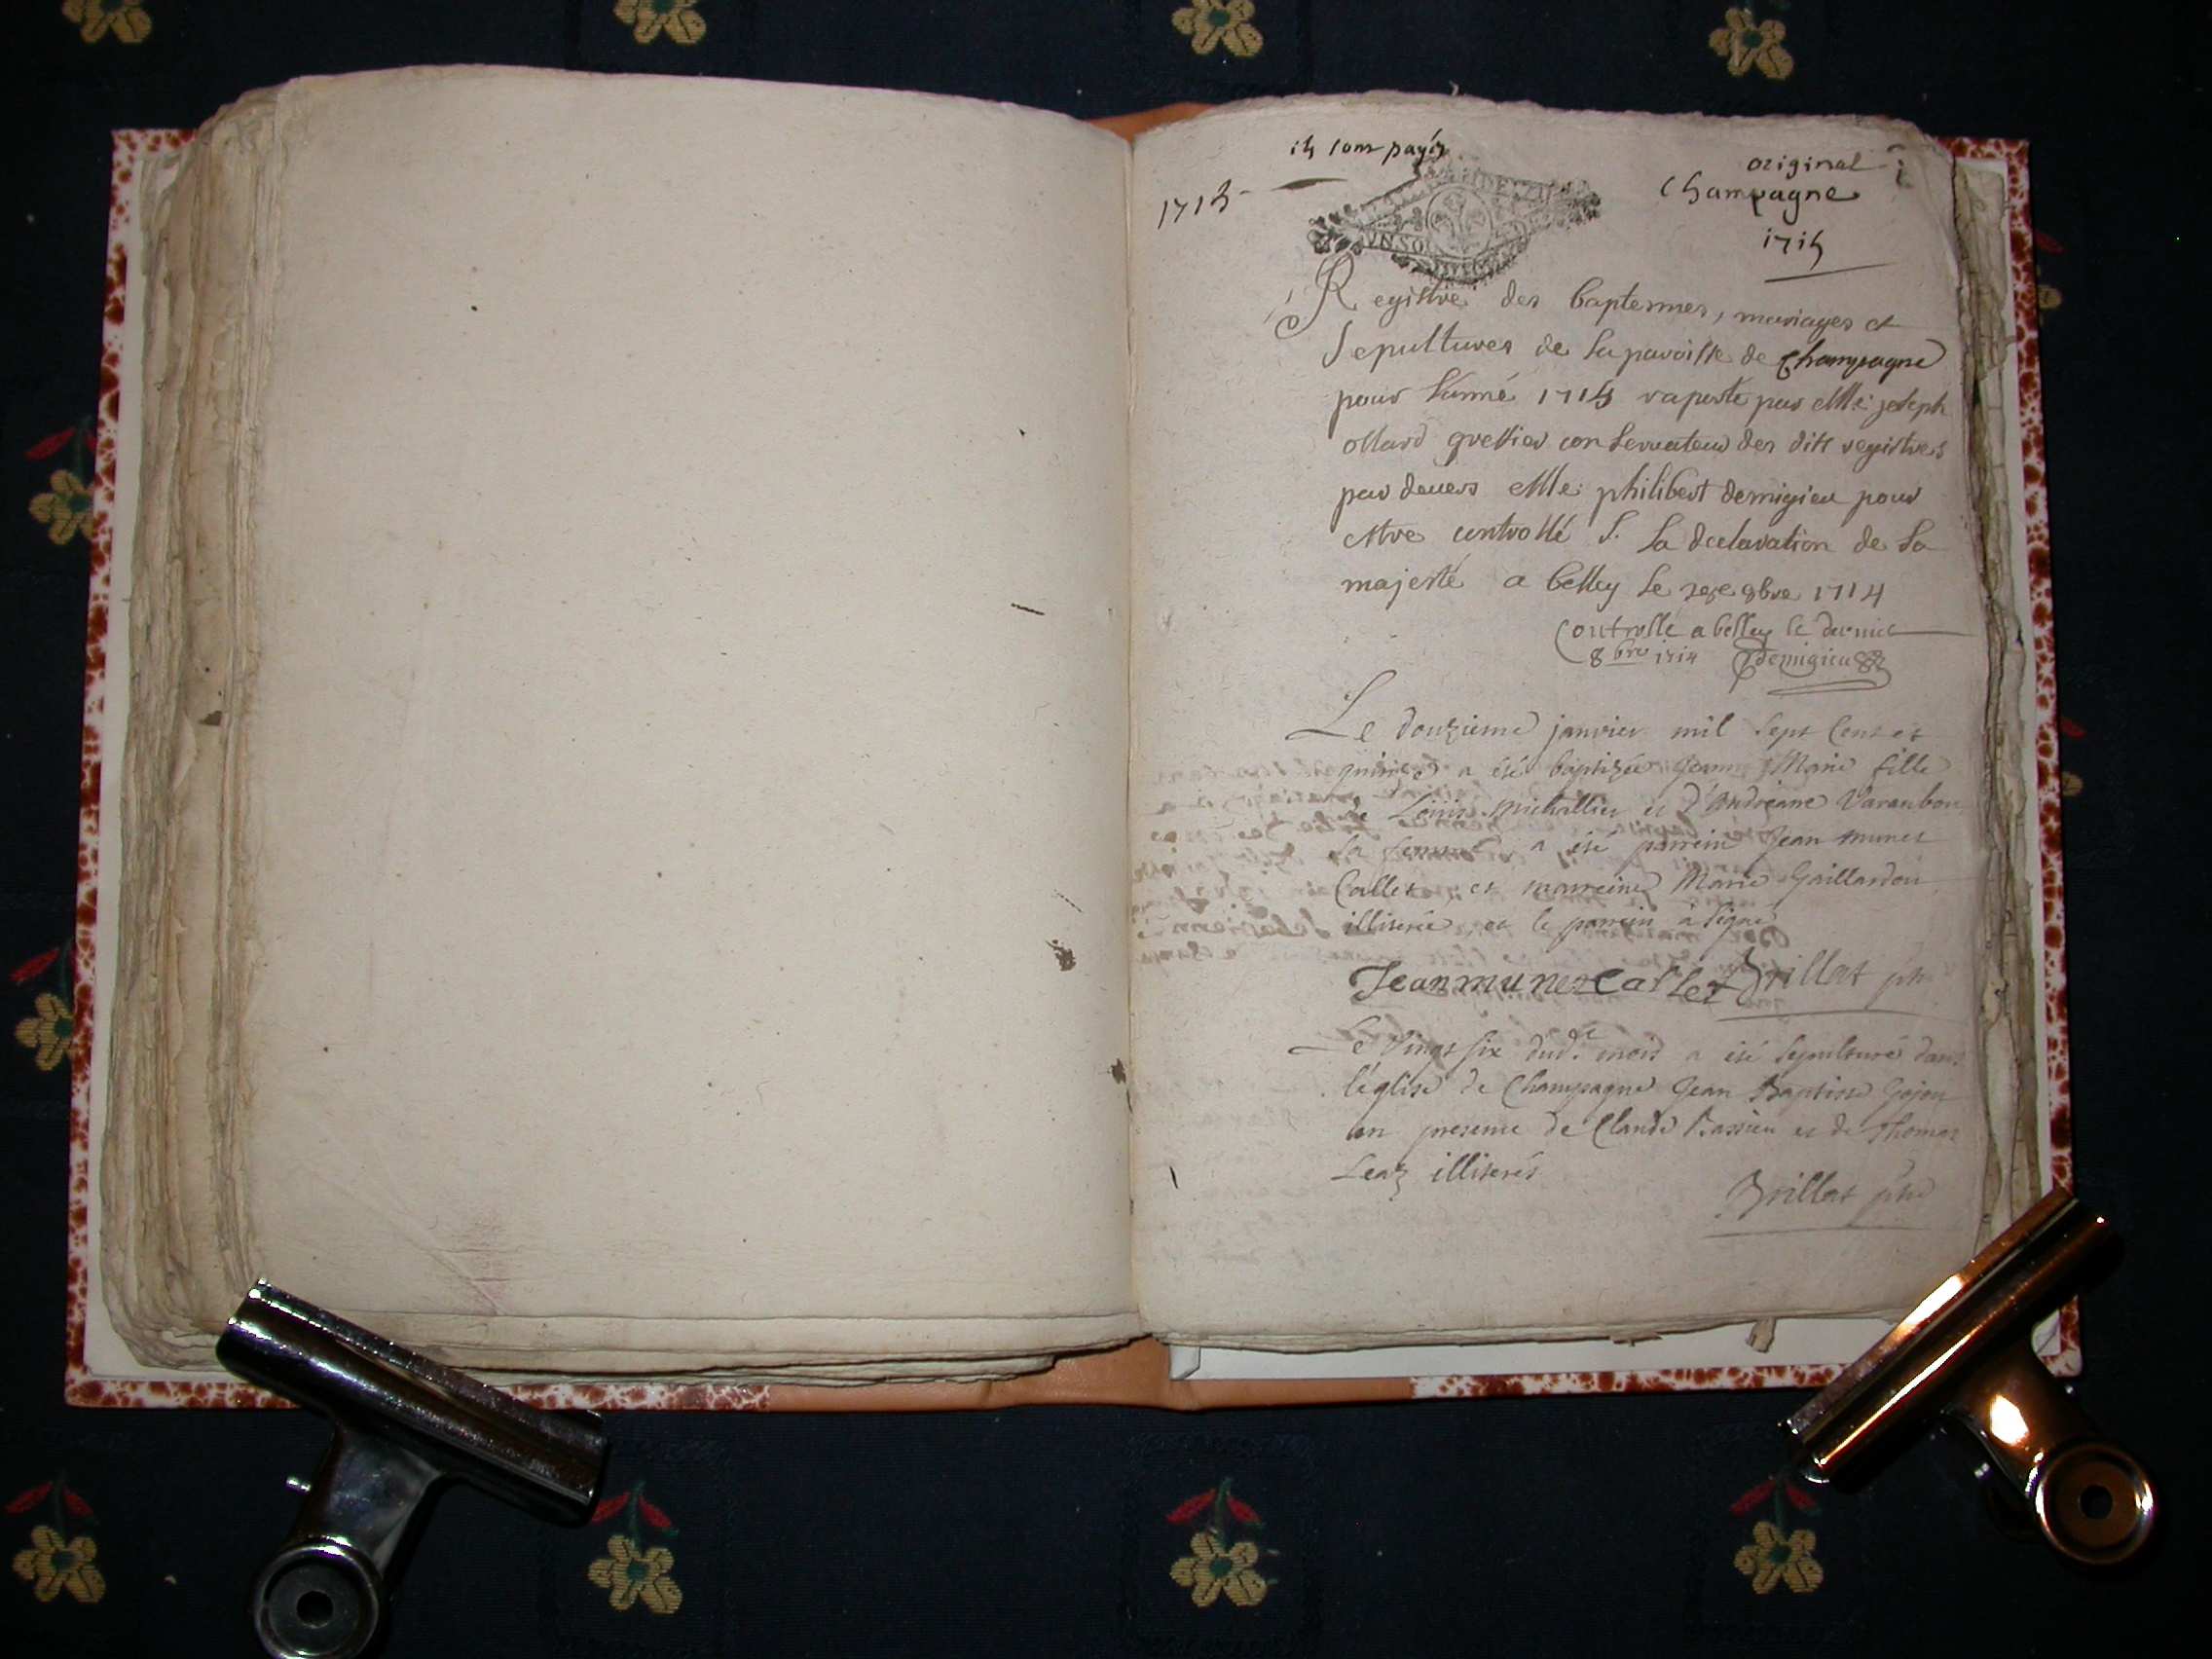 ils sont payés
1715
original
Champagne
1715
UN SOL
Registre des baptesmes, mariages et
sepultures de la paroisse de Champagne
pour l'anné 1715 raporté par Me joseph
ollard greffier conservateur des dits registres
par devers Me philibert demigieu pour
estre controllé S. la declaration de sa
majesté a belley le 8bre 1714
Controlle a belley le dernier
8bre 1714 Demigieu
Le douzieme janvier mil sept cent et
quinze a été baptizée Jeanne Marie fille
de Loüis Michallier et d'Andréane Varanbon
sa femme, a été parrein Jean munet
Callet, et marreine Marie Gaillardon
illiterée, et le parrein a signé
Jean munet Callet Brillat ptre
Le vingt six dud.t mois a été sepulturé dans
l'église de Champagne Jean Baptiste Gojon
en presence de Claude Bassieu et de Thomas
Leaz illiterés
Brillat ptre